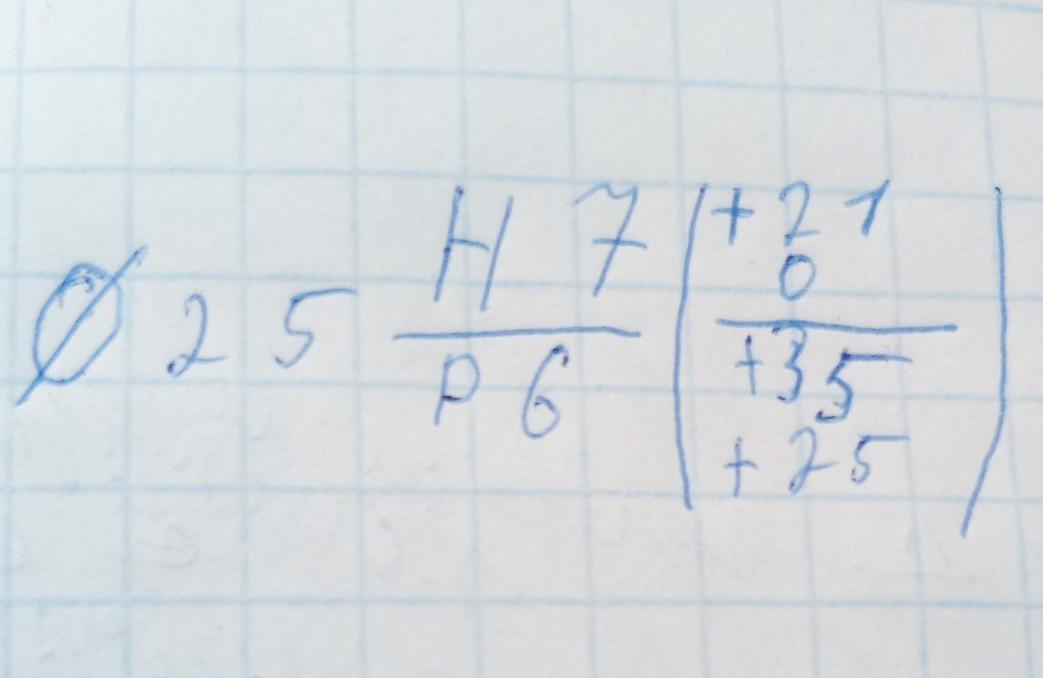 Ø 25 H7/P6 (+21 0/+35 +25)